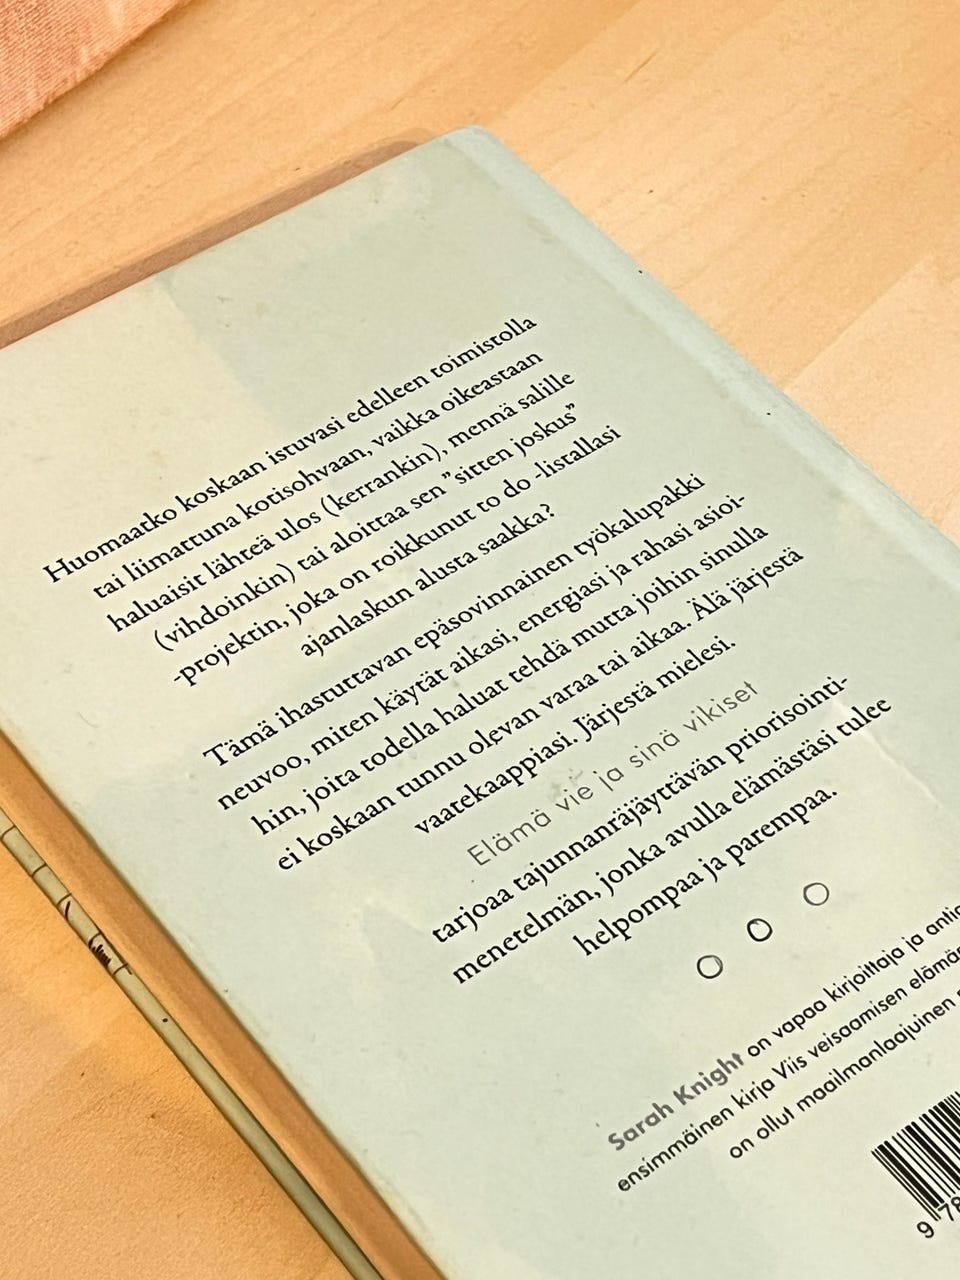 Huomaatko koskaan istuvasi edelleen toimistolla
tai liimattuna kotisohvaan, vaikka oikeastaan
haluaisit lähteä ulos (kerrankin), mennä salille
(vihdoinkin) tai aloittaa sen ”sitten joskus”
-projektin, joka on roikkunut to do -listallasi
ajanlaskun alusta saakka?
Tämä ihastuttavan epäsovinnainen työkalupakki
neuvoo, miten käytät aikasi, energiasi ja rahasi asioi-
hin, joita todella haluat tehdä mutta joihin sinulla
ei koskaan tunnu olevan varaa tai aikaa. Älä järjestä
vaatekaappiasi. Järjestä mielesi.
Elämä vie ja sinä vikiset
tarjoaa tajunnanräjäyttävän priorisointi-
menetelmän, jonka avulla elämästäsi tulee
helpompaa ja parempaa.
Sarah Knight on vapaa kirjoittaja ja
ensimmäinen kirja Viis veisaamisen
on ollut maailmanlaajuinen
9 78